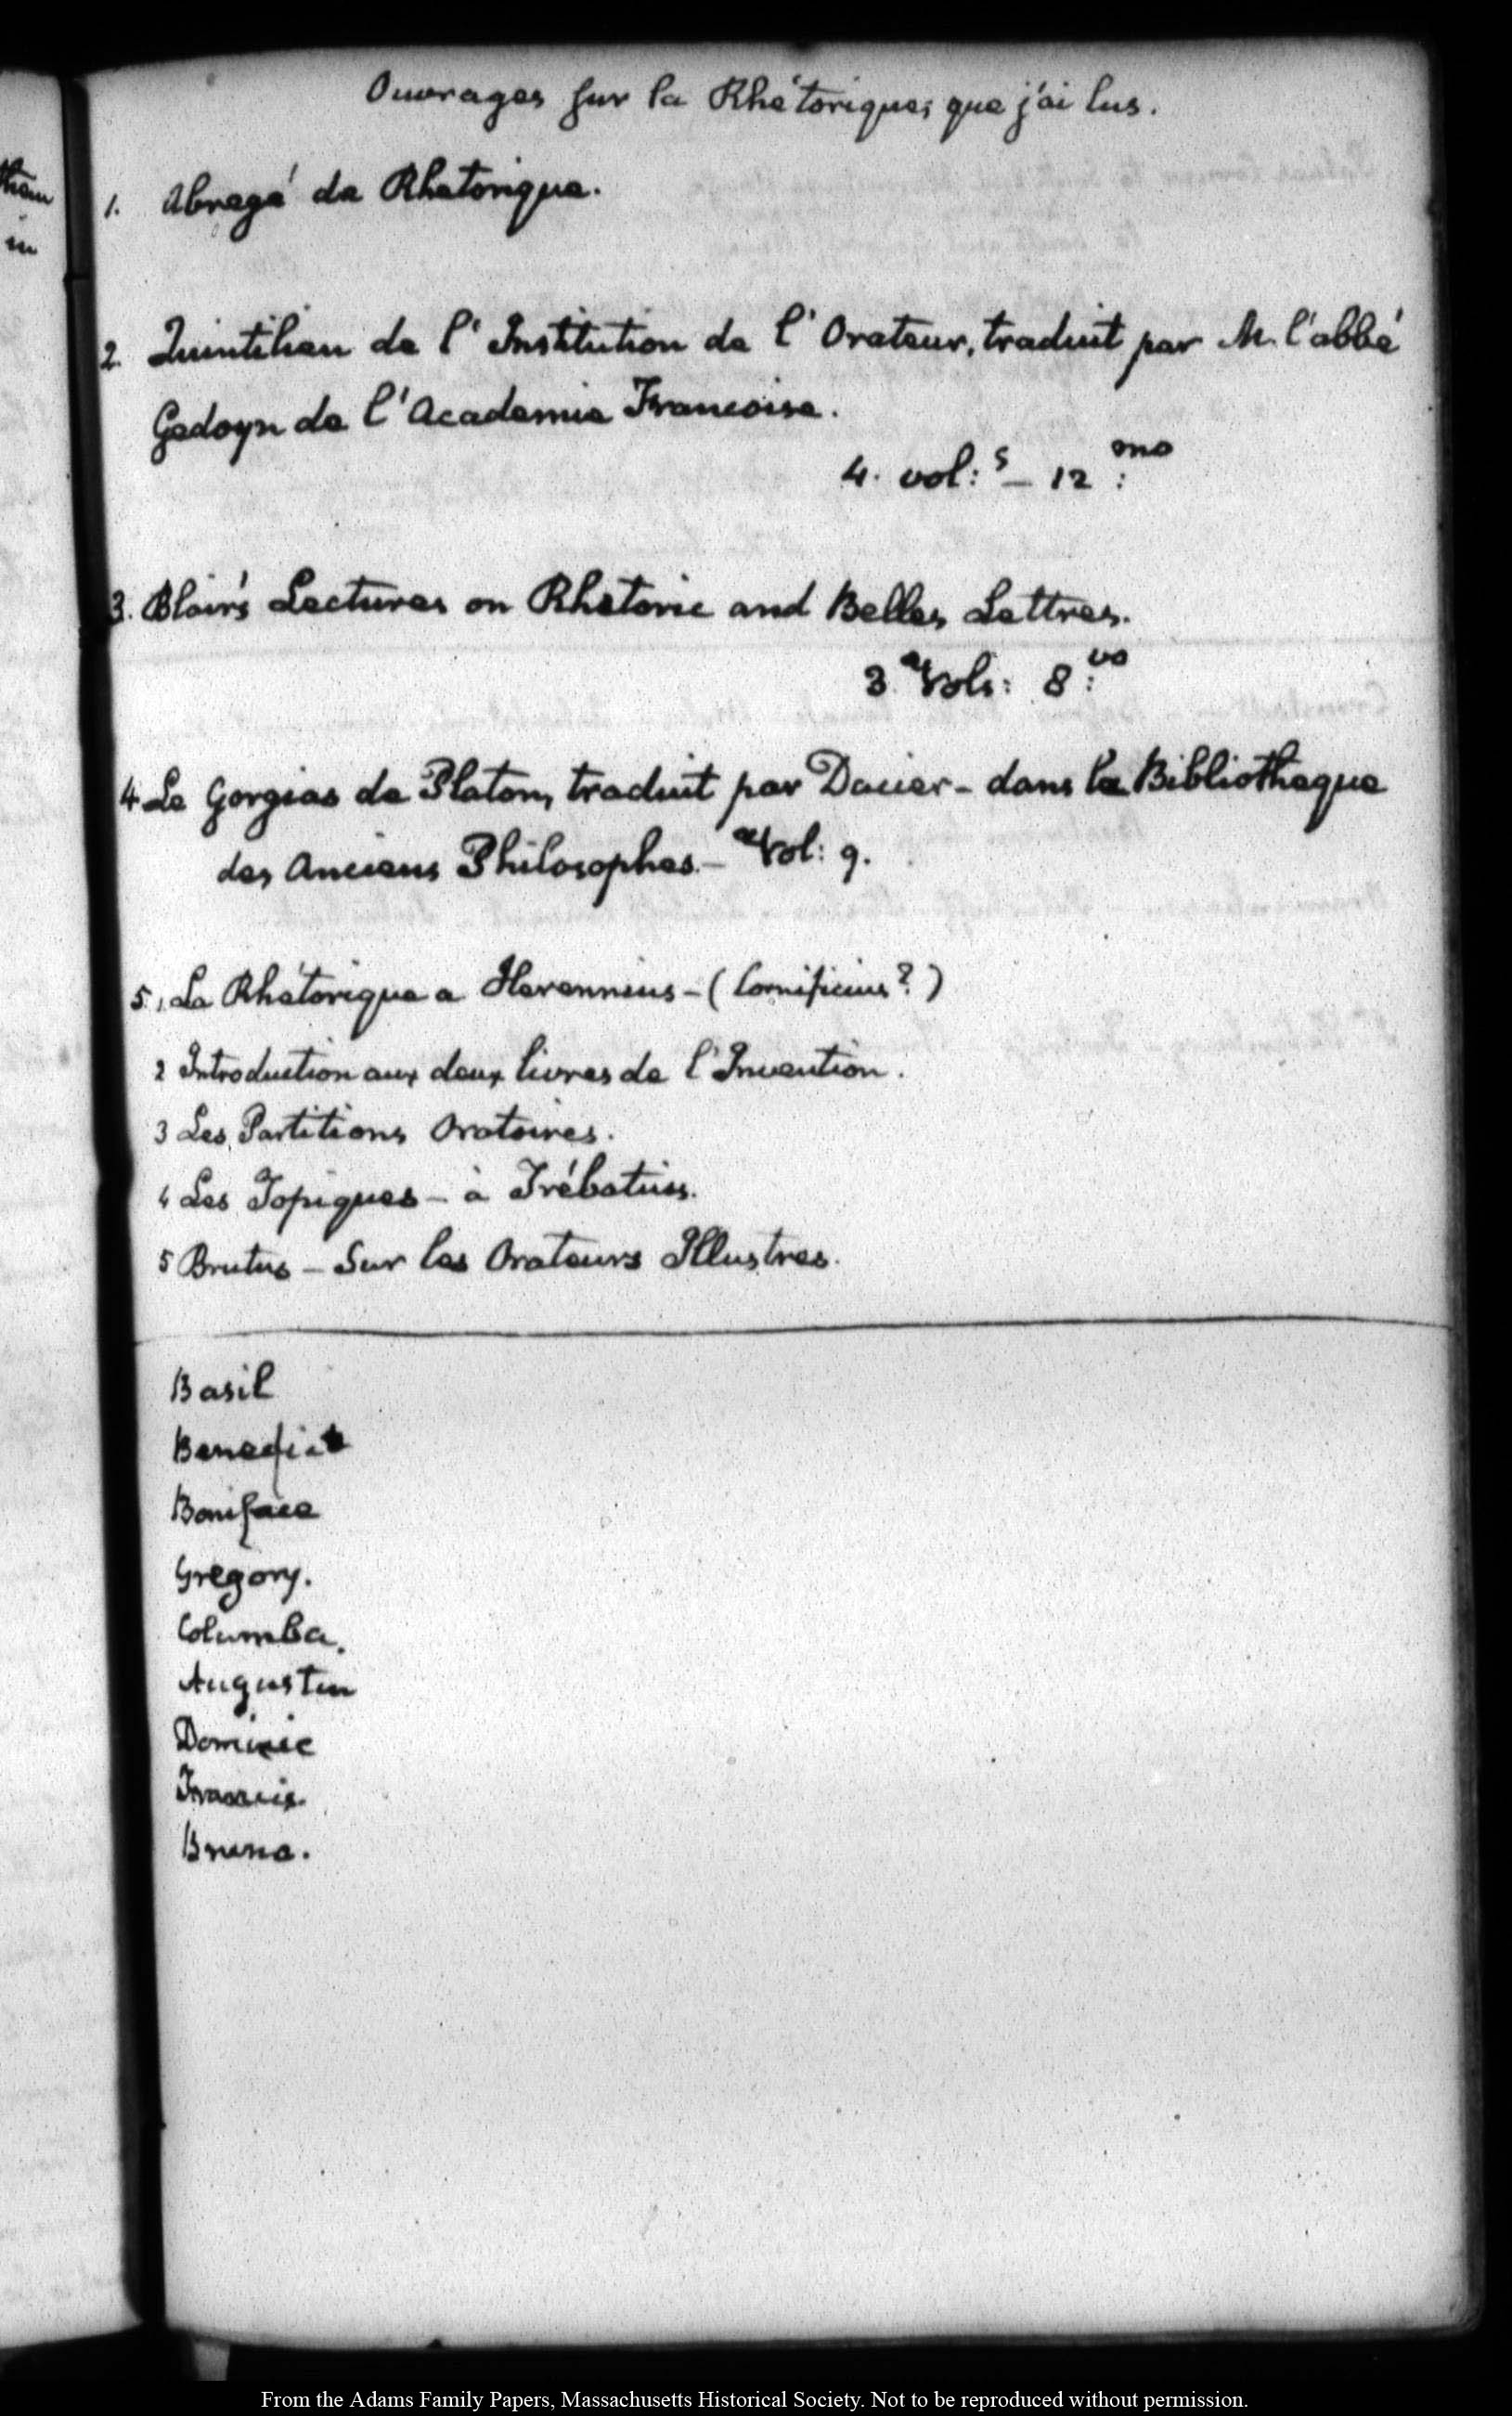 them
in
Ouvrages sur la Rhétorique, que j'ai lus.
1. Abregé de Rhetorique.
2. Quintilien de l'Institution de l'Orateur, traduit par M. l'abbé
Gedoyn de l'Academie Francoise.
4. vol:s — 12:mo
3. Blair's Lectures on Rhetoric and Belles Lettres.
3. Vols: 8:vo
4. Le Gorgias de Platon, traduit par Dacier - dans la Bibliotheque
des Anciens Philosophes. — Vol: 9.
5. 1. La Rhétorique a Herennius - (Cornificius?)
2 Introduction aux deux livres de l'Invention.
3 Les Partitions Oratoires.
4 Les Topiques — à Trébatius.
5 Brutus — Sur les Orateurs Illustres.
Basil
Benedict
Boniface
Gregory.
Columba.
Augustin
Dominic
Francis.
Bruno.
From the Adams Family Papers, Massachusetts Historical Society. Not to be reproduced without permission.